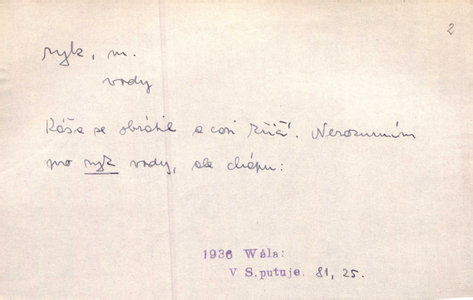 2
ryk, m.
vody
Káša se obrátil a cosi křičí. Nerozumím
pro ryk vody, ale chápu:
1936 Wála:
V S.putuje. 81, 25.